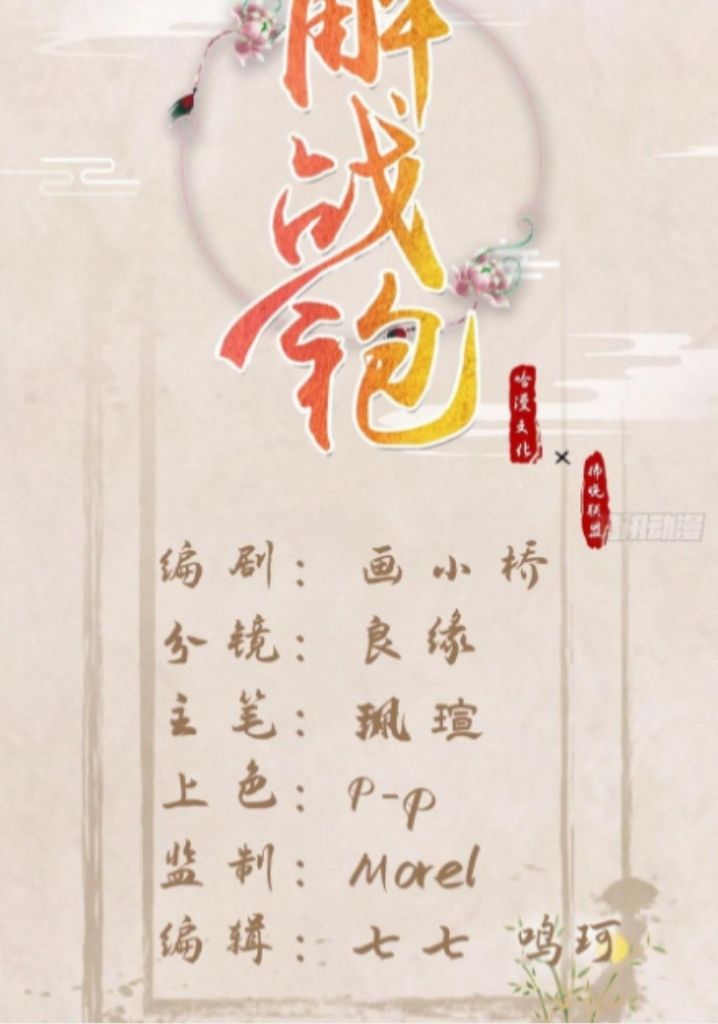 解
战
袍
哈漫文化
×
拂晓联盟
腾讯动漫
编剧： 画小桥
分镜： 良缘
主笔： 珮瑄
上色： P-p
监制： Morel
编辑： 七七 鸣珂